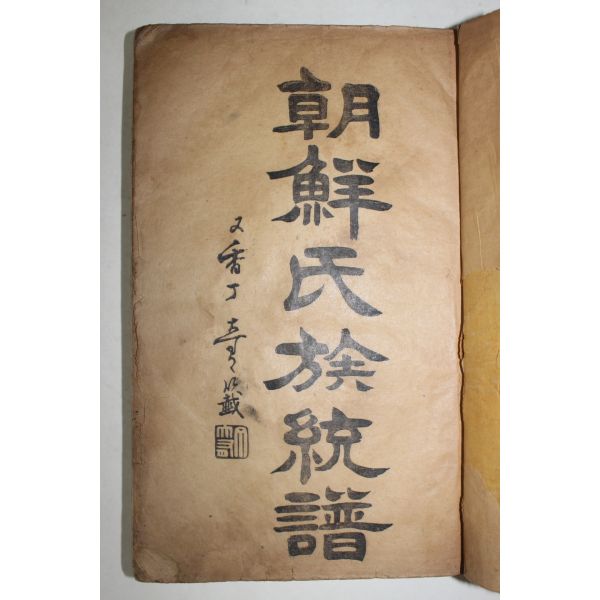 朝鮮氏族統譜
又香丁